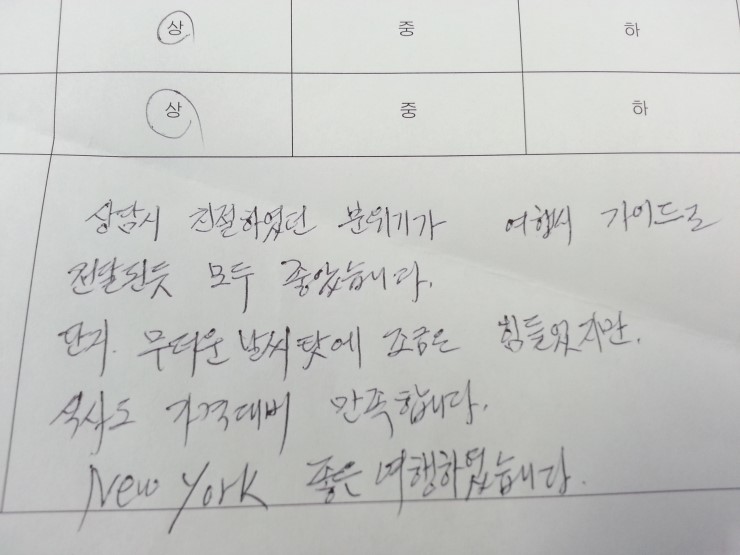 상 중 하
상 중 하
상담시 친절하였던 분위기가 여행시 가이드로
전달된듯 모두 좋았습니다.
단지. 무더운 날씨 탓에 조금은 힘들었지만.
식사도 가격대비 만족합니다.
New York 좋은 여행하였습니다.